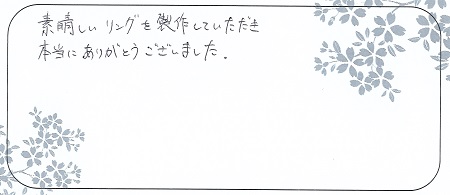 素晴しいリングを製作していただき
本当にありがとうございました.